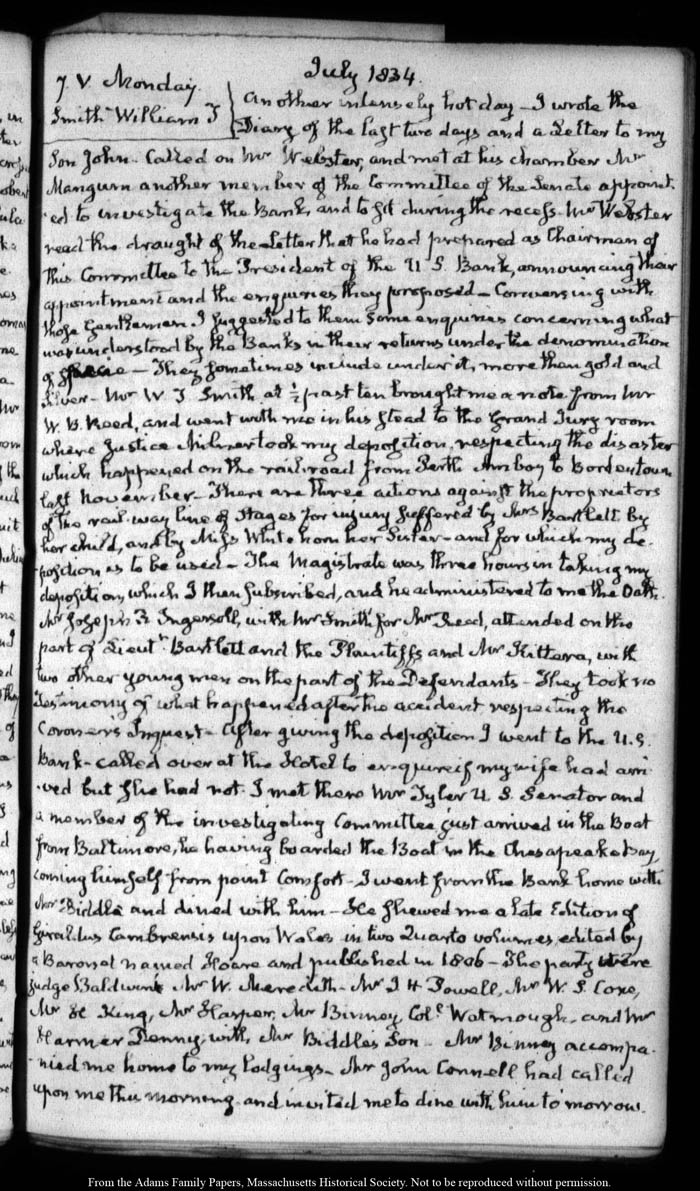 July 1834.
7. V. Monday.
Smith William J
Another intensely hot day - I wrote the
Diary of the last two days and a Letter to my
Son John - Called on Mr Webster, and met at his chamber Mr
Mangum another member of the Committee of the Senate appoint-
ed to investigate the Bank, and to sit during the recess. Mr Webster
read the draught of the Letter that he had prepared as Chairman of
this Committee to the President of the U S. Bank, announcing their
appointment and the enquiries they proposed - Conversing with
those Gentlemen I suggested to them some enquiries concerning what
was understood by the Banks in their returns under the denomination
of specie - They sometimes include under it, more than gold and
silver - Mr W. J Smith at ½ past ten brought me a note from Mr
W. B. Reed, and went with me in his stead to the Grand Jury room
where Justice Milnor took my deposition, respecting the disaster
which happened on the railroad from Perth Amboy to Bordentown
last November - There are three actions against the proprietors
of the rail-way line of Stages for injury suffered by Mrs Bartlett by
her child, and by Miss Whitehorn her Sister - and for which my de-
position is to be used - The Magistrate was three hours in taking my
deposition, which I then subscribed, and he administered to me the Oath.
Mr Joseph R Ingersoll, with Mr Smith for Mr Reed, attended on the
part of Lieutt. Bartlett and the Plaintiffs and Mr Kittera, with
two other young men on the part of the Defendants - They took no
Testimony of what happened after the accident respecting the
Coroner's Inquest - After giving the deposition I went to the U.S.
Bank - called over at the Hotel to enquire if my wife had arri-
ved but she had not. I met there Mr Tyler U. S. Senator and
a member of the investigating Committee just arrived in the Boat
from Baltimore, he having boarded the Boat in the Chesapeake Bay,
coming himself from point Comfort - I went from the Bank home with
Mr Biddle and dined with him - He shewed me a late Edition of
Giraldus Cambrensis upon Wales in two Quarto volumes, edited by
a Baronet named Hoare and published in 1806 - The party were
Judge Baldwin Mr W. Meredith - Mr J H Powell, Mr W. S. Coxe,
Mr King, Mr Harper, Mr Binney, Col. Watmough, and Mr
Harmar Denny, with Mr Biddle's Son - Mr Binney accompa-
nied me home to my lodgings - Mr John Connell had called
upon me this morning and invited me to dine with him to morrow.
From the Adams Family Papers, Massachusetts Historical Society. Not to be reproduced without permission.